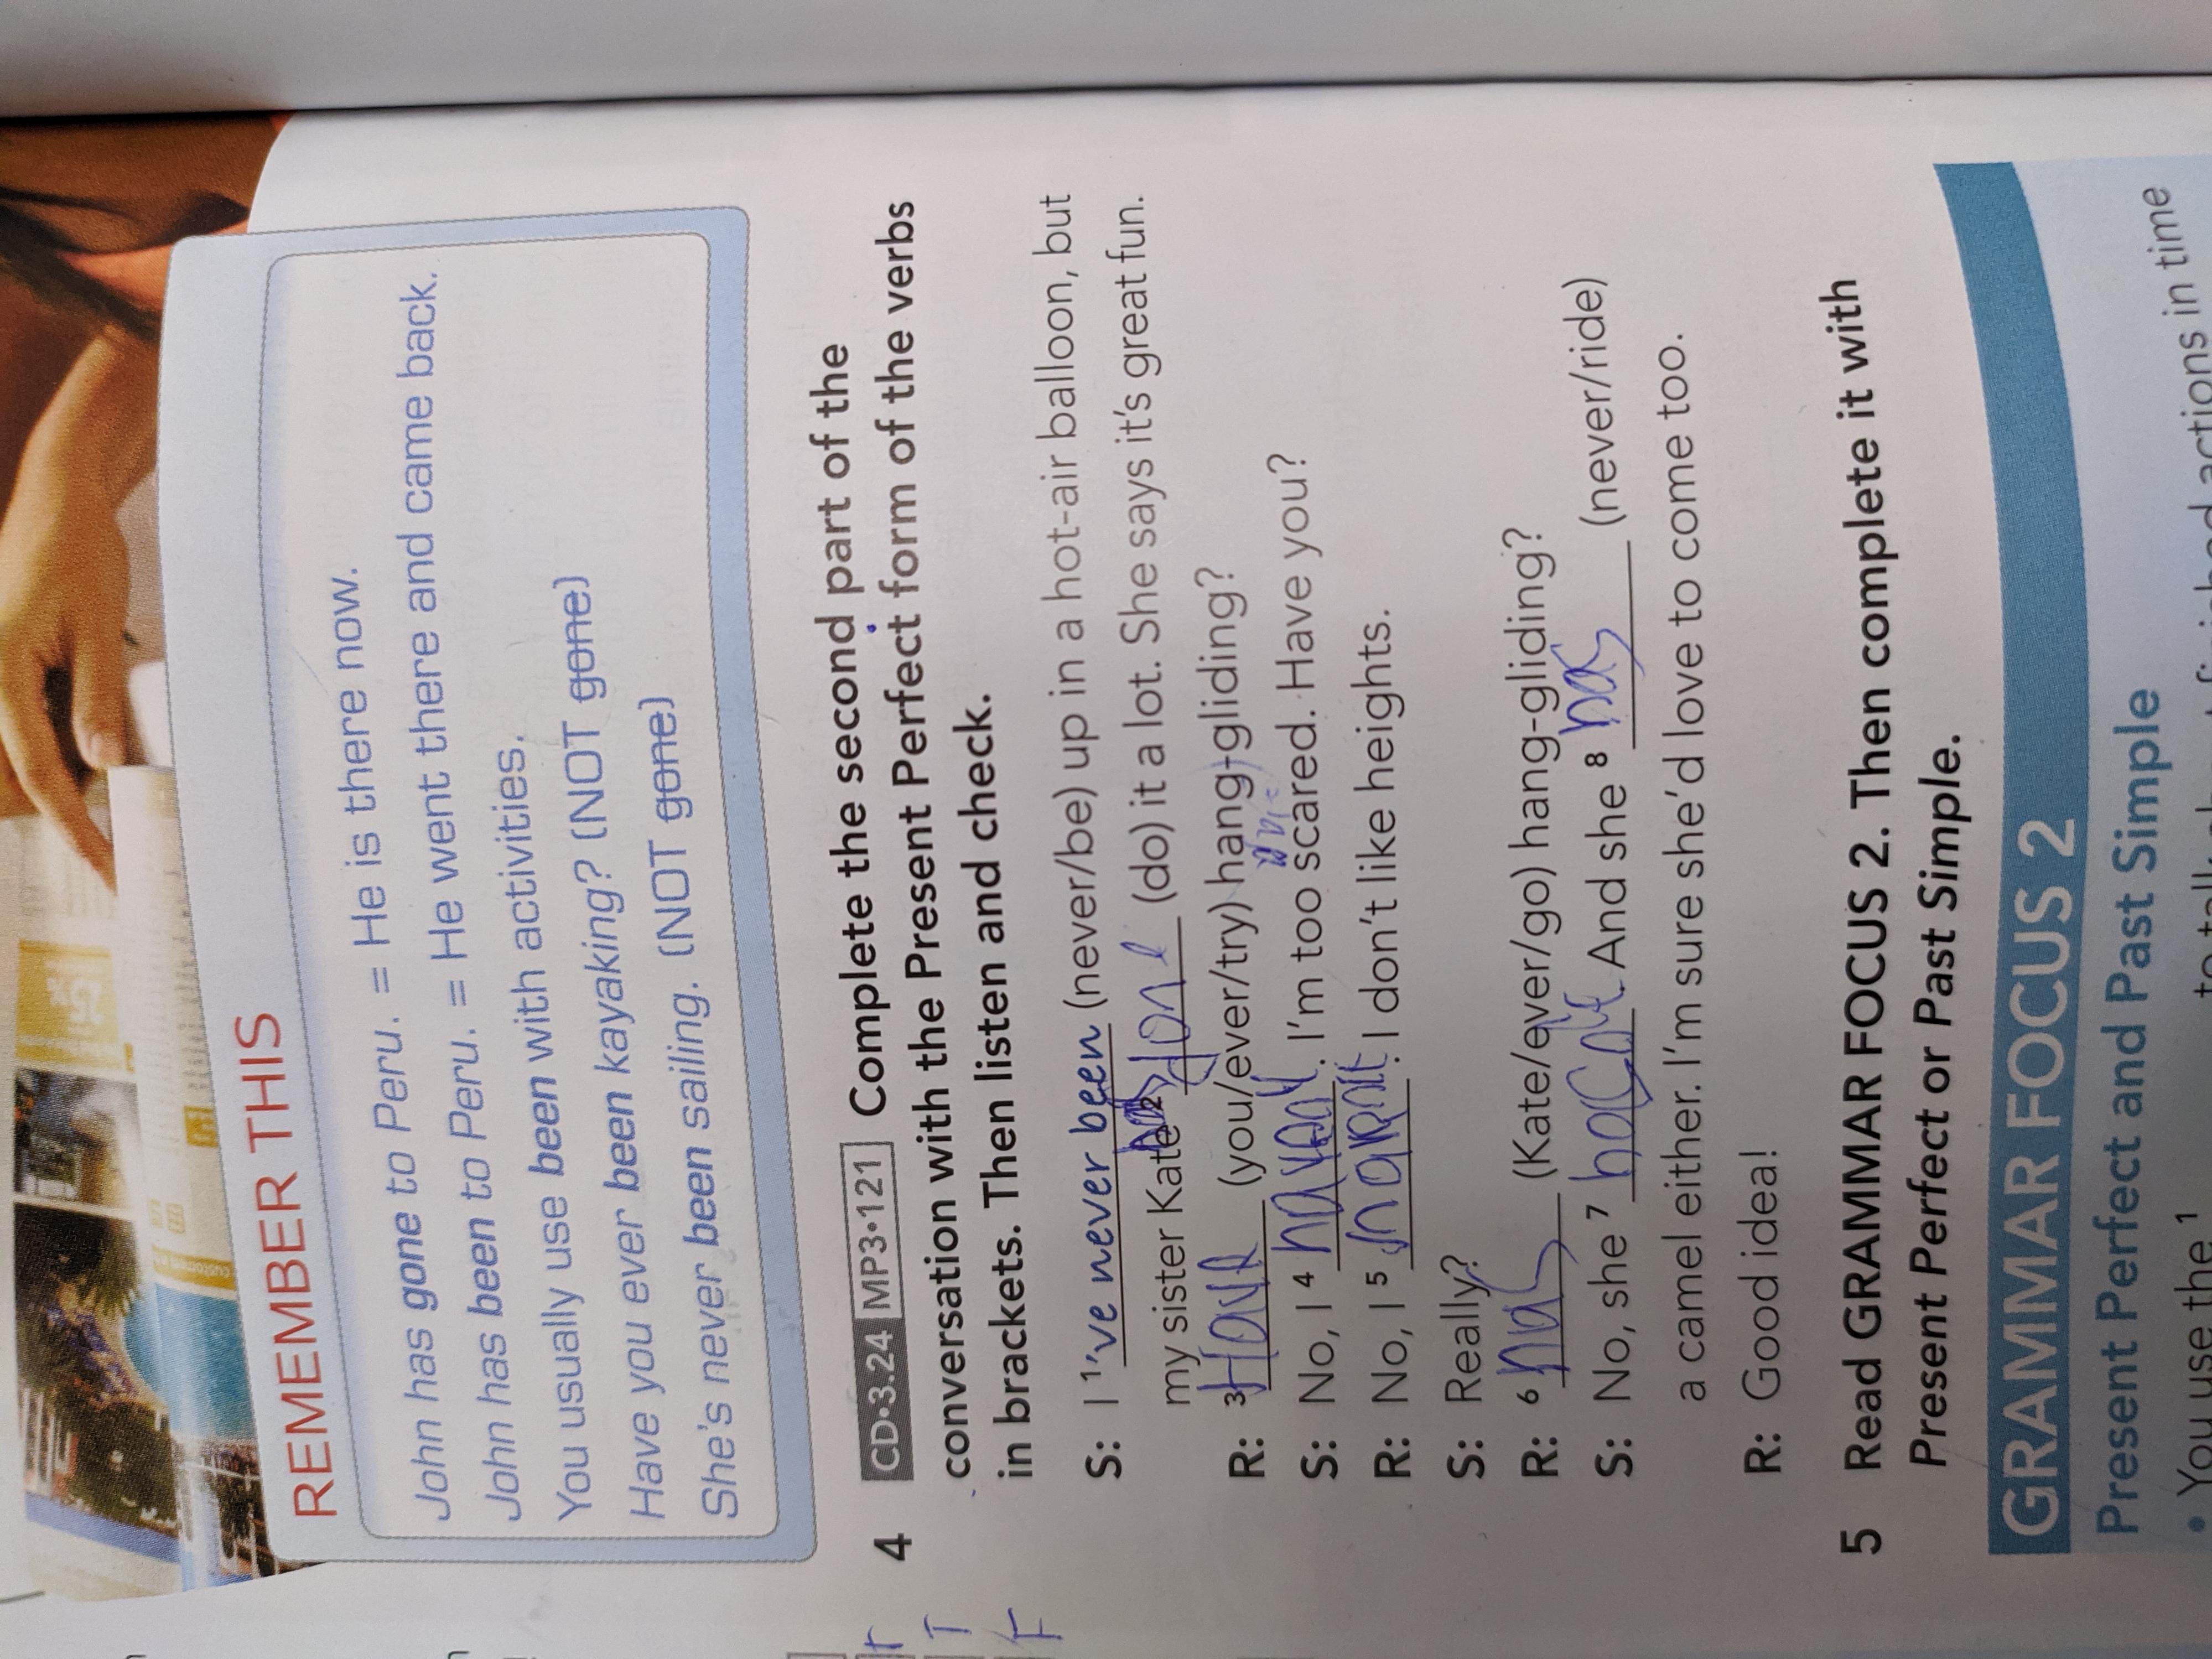 REMEMBER THIS
John has gone to Peru. = He is there now.
John has been to Peru. = He went there and came back.
You usually use been with activities.
Have you ever been kayaking? (NOT gone)
She's never been sailing. (NOT gone)
4 CD•3.24 MP3•121 Complete the second part of the
conversation with the Present Perfect form of the verbs
in brackets. Then listen and check.
S: I 1 've never been (never/be) up in a hot-air balloon, but
my sister Kate 2 (do) it a lot. She says it's great fun.
R: 3 Have (you/ever/try) hang-gliding?
S: No, I 4 . I'm too scared. Have you?
R: No, I 5 . I don't like heights.
S: Really?
R: 6 has (Kate/ever/go) hang-gliding?
S: No, she 7 . And she 8 has (never/ride)
a camel either. I'm sure she'd love to come too.
R: Good idea!
5 Read GRAMMAR FOCUS 2. Then complete it with
Present Perfect or Past Simple.
GRAMMAR FOCUS 2
Present Perfect and Past Simple
• You use the 1
actions in time
T
F